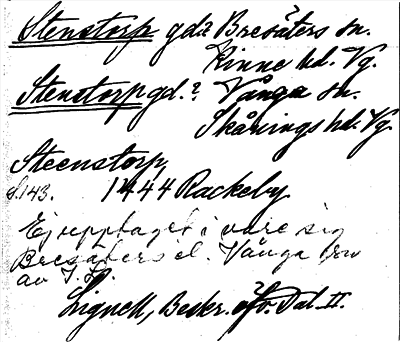 Stenstorp gd? Bresäters sn.
Kinne hd. Vg.
Stenstorp gd.? Vånga sn.
Skånings hd. Vg.
Steenstorp
S.143. 1444 Rackeby
Ej upptaget i vare sig
Bresäters el. Vånga sn
av I. L.
Lignell, Beskr. öfv. Dal. II.